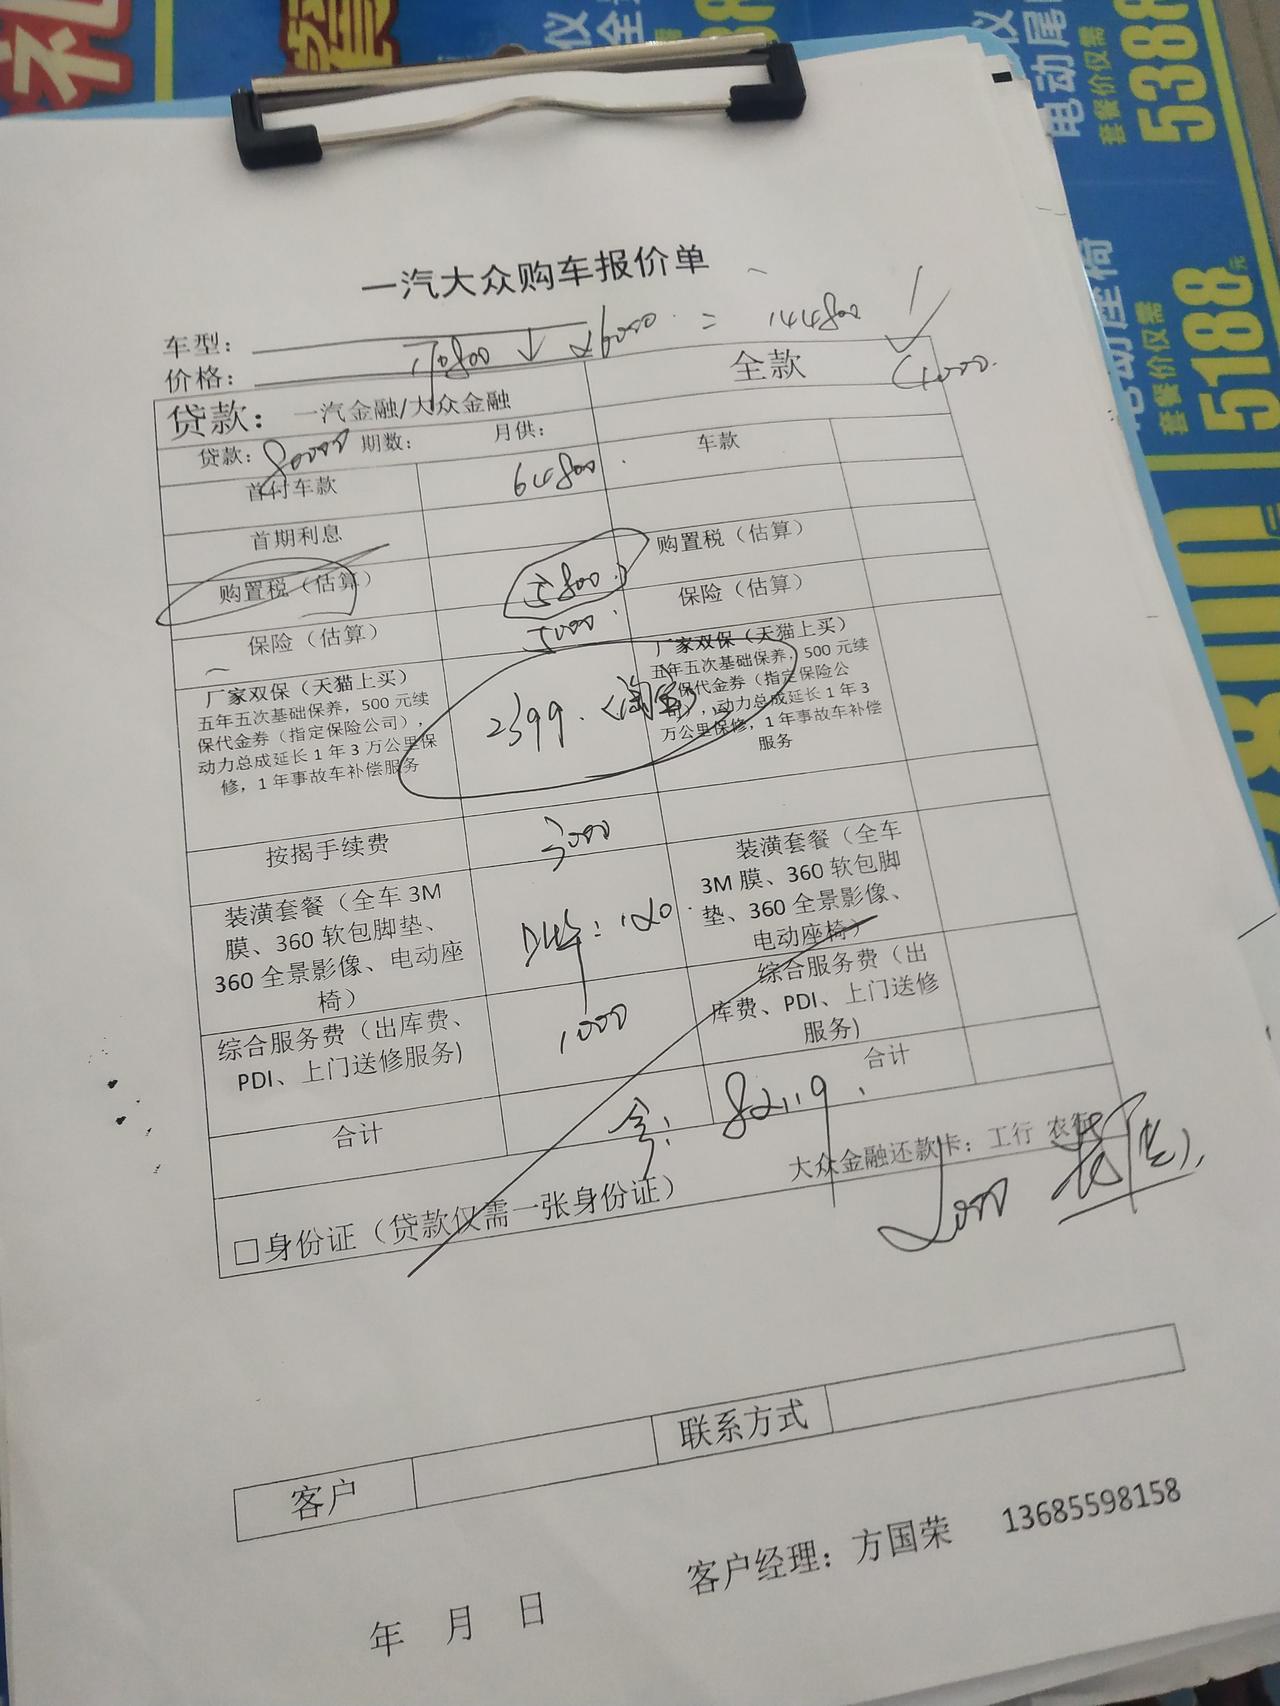 5388
套餐价仅需
电动尾
5188元
套餐价仅需
电动座椅
一汽大众购车报价单
车型：
170800 ↓ 26000 = 144800
价格：
(1000)
贷款： 一汽金融/大众金融
全款
贷款：80000 期数： 月供：
首付车款 64800
车款
首期利息
购置税（估算） 5800
购置税（估算）
保险（估算） 5000
保险（估算）
厂家双保（天猫上买）
五年五次基础保养，500 元续
保代金券（指定保险公司），
动力总成延长 1 年 3 万公里保
修，1 年事故车补偿服务
2399.（淘宝）
厂家双保（天猫上买）
五年五次基础保养，500 元续
保代金券（指定保险公
司），动力总成延长 1 年 3
万公里保修，1 年事故车补偿
服务
按揭手续费 3000
装潢套餐（全车 3M
膜、360 软包脚垫、
360 全景影像、电动座
椅）
120
装潢套餐（全车
3M 膜、360 软包脚
垫、360 全景影像、
电动座椅）
综合服务费（出库费、
PDI、上门送修服务)
1000
综合服务费（出
库费、PDI、上门送修
服务)
合计
合计
82119
大众金融还款卡：工行 农行
□身份证（贷款仅需一张身份证）
客户
联系方式
客户经理：方国荣 13685598158
年 月 日